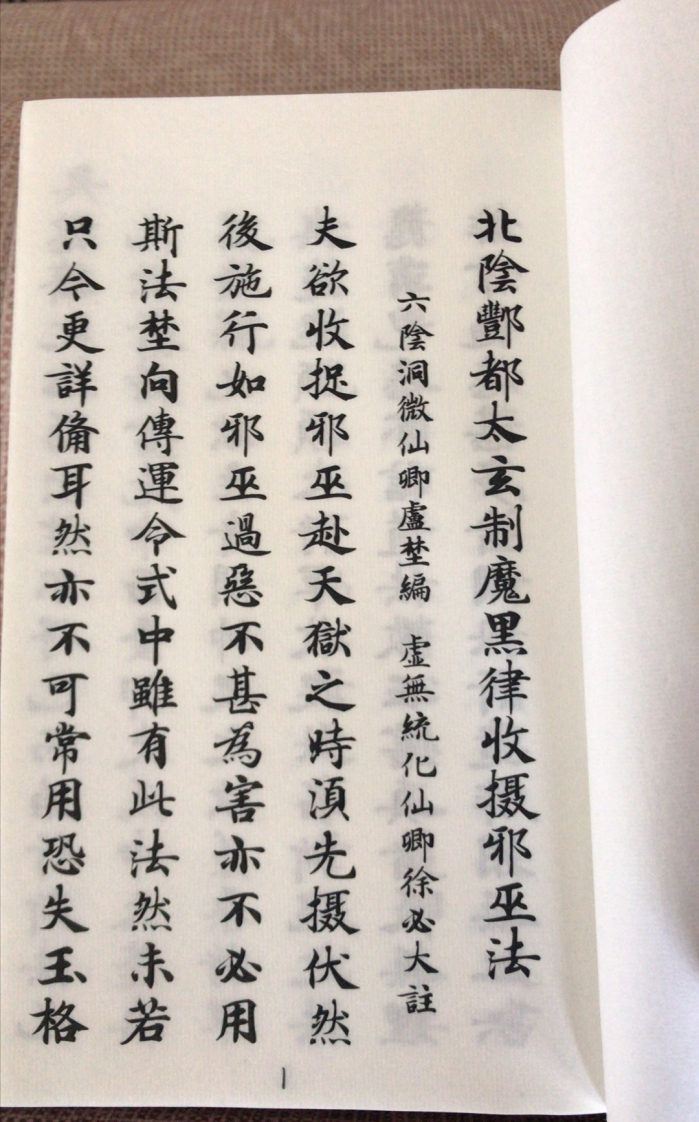 北陰酆都太玄制魔黑律收摄邪巫法
六陰洞微仙卿盧埜編　虛無統化仙卿徐必大註
夫欲收捉邪巫赴天獄之時湏先摄伏然
後施行如邪巫過惡不甚為害亦不必用
斯法埜向傳運令式中雖有此法然未若
只今更詳俻耳然亦不可常用恐失玉格
1